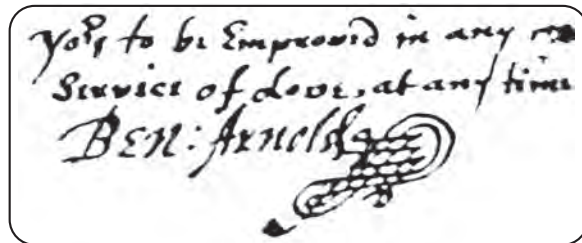 yors to be Emproved in any
Service of Love, at any time
Ben: Arnold